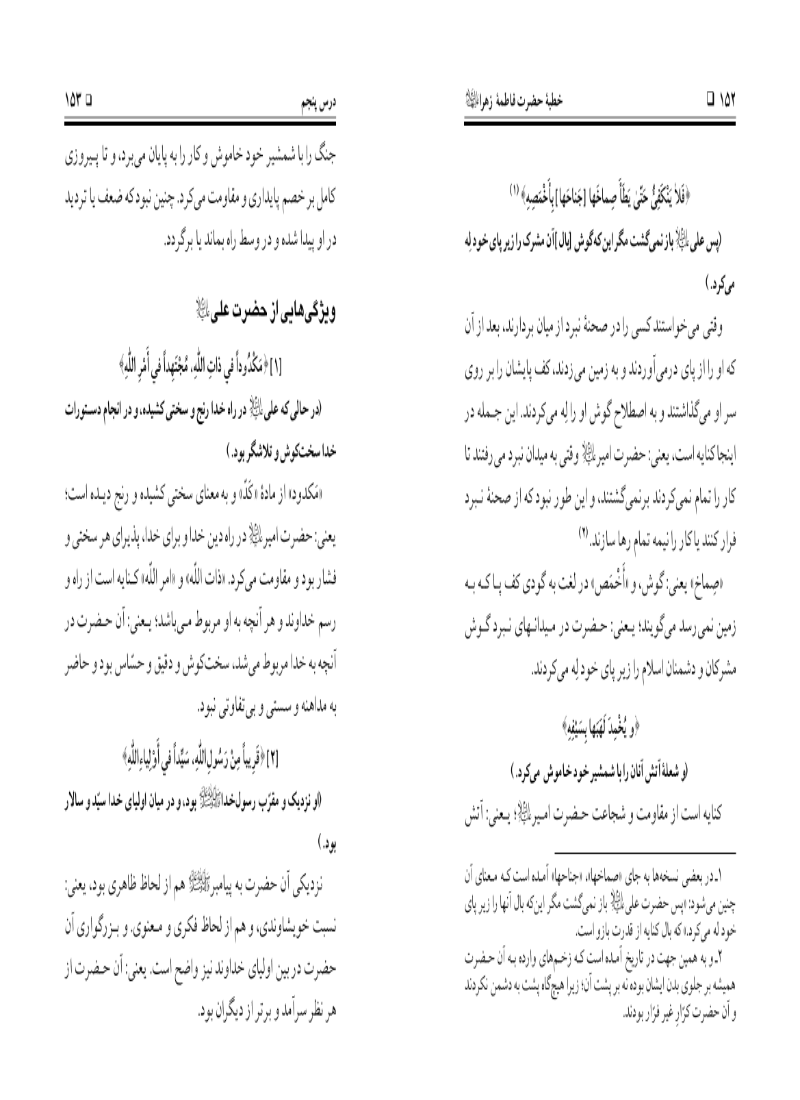 ۱۵۲ ❑ خطبهٔ حضرت فاطمهٔ زهرا
﴿فَلاٰ يَنْكَفِئُ حَتّىٰ يَطَأَ صِماخَها [جَناحَها] بِأَخْمَصِهِ﴾(۱)
(پس علی باز نمی‌گشت مگر این که گوش [بال] آن مشرک را زیر پای خود لِه
می‌کرد.)
وقتی می‌خواستند کسی را در صحنهٔ نبرد از میان بردارند، بعد از آن
که او را از پای درمی‌آوردند و به زمین می‌زدند، کف پایشان را بر روی
سر او می‌گذاشتند و به اصطلاح گوش او را لِه می‌کردند. این جمله در
اینجا کنایه است، یعنی: حضرت امیر وقتی به میدان نبرد می‌رفتند تا
کار را تمام نمی‌کردند برنمی‌گشتند، و این طور نبود که از صحنهٔ نبرد
فرار کنند یا کار را نیمه تمام رها سازند.(۲)
«صِماخ» یعنی: گوش، و «أخْمَص» در لغت به گودی کف پا که به
زمین نمی‌رسد می‌گویند؛ یعنی: حضرت در میدانهای نبرد گوش
مشرکان و دشمنان اسلام را زیر پای خود لِه می‌کردند.
﴿و يُخْمِدَ لَهَبَها بِسَيْفِهِ﴾
(و شعلهٔ آتش آنان را با شمشیر خود خاموش می‌کرد.)
کنایه است از مقاومت و شجاعت حضرت امیر؛ یعنی: آتش
۱ـ در بعضی نسخه‌ها به جای «صماخها»، «جناحها» آمده است که معنای آن
چنین می‌شود: «پس حضرت علی باز نمی‌گشت مگر این‌که بال آنها را زیر پای
خود له می‌کرد.» که بال کنایه از قدرت بازو است.
۲ـ و به همین جهت در تاریخ آمده است که زخم‌های وارده به آن حضرت
همیشه بر جلوی بدن ایشان بوده نه بر پشت آن؛ زیرا هیچ‌گاه پشت به دشمن نکردند
و آن حضرت کرّارِ غیر فرّار بودند.
درس پنجم ❑ ۱۵۳
جنگ را با شمشیر خود خاموش و کار را به پایان می‌برد، و تا پیروزی
کامل بر خصم پایداری و مقاومت می‌کرد. چنین نبود که ضعف یا تردید
در او پیدا شده و در وسط راه بماند یا برگردد.
ویژگی‌هایی از حضرت علی
[۱] ﴿مَكْدُوداً في ذاتِ اللّٰهِ، مُجْتَهِداً في أَمْرِ اللّٰهِ﴾
(در حالی که علی در راه خدا رنج و سختی کشیده، و در انجام دستورات
خدا سخت‌کوش و تلاشگر بود.)
«مَکدود» از مادهٔ «کَدّ» و به معنای سختی کشیده و رنج دیده است؛
یعنی: حضرت امیر در راه دین خدا و برای خدا، پذیرای هر سختی و
فشار بود و مقاومت می‌کرد. «ذات اللّه» و «امر اللّه» کنایه است از راه و
رسم خداوند و هر آنچه به او مربوط می‌باشد؛ یعنی: آن حضرت در
آنچه به خدا مربوط می‌شد، سخت‌کوش و دقیق و حسّاس بود و حاضر
به مداهنه و سستی و بی‌تفاوتی نبود.
[۲] ﴿قَريباً مِنْ رَسُولِ اللّٰهِ، سَيِّداً في أَوْلِياءِ اللّٰهِ﴾
(او نزدیک و مقرّب رسول‌خدا بود، و در میان اولیای خدا سیّد و سالار
بود.)
نزدیکی آن حضرت به پیامبر هم از لحاظ ظاهری بود، یعنی:
نسبت خویشاوندی، و هم از لحاظ فکری و معنوی. و بزرگواری آن
حضرت در بین اولیای خداوند نیز واضح است. یعنی: آن حضرت از
هر نظر سرآمد و برتر از دیگران بود.